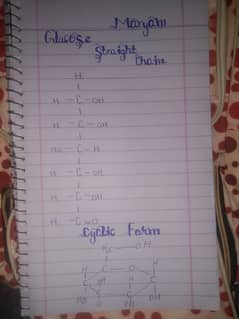 Maryam
Glucose
Straight
Chain
H
H - C - OH
H - C - OH
HO - C - H
H - C - OH
H - C - OH
H - C
Cyclic Form
OH
H C O H
C H C
HO C C OH